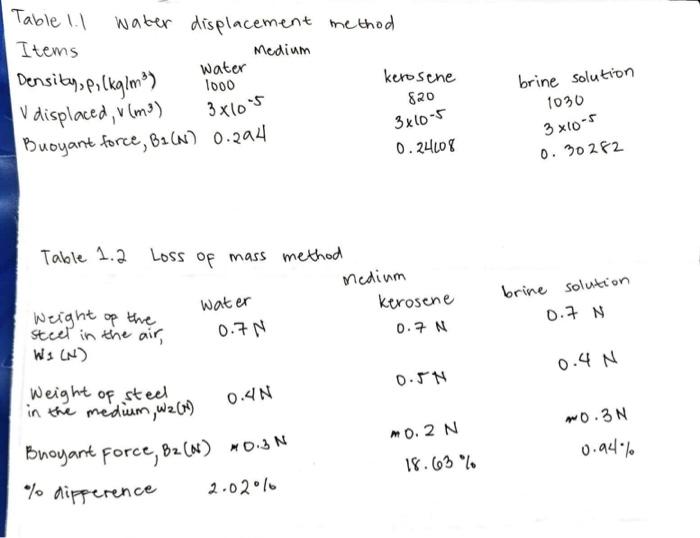 Table 1.1 water displacement method
Items Medium
water kerosene brine solution
Density, ρ, (kg/m³) 1000 820 1030
V displaced, v (m³) 3x10-5 3x10-5 3x10-5
Buoyant force, B1 (N) 0.294 0.24108 0.30282
Table 1.2 Loss of mass method
medium
water kerosene brine solution
Weight of the
steel in the air, 0.7 N 0.7 N 0.7 N
W1 (N)
Weight of steel
in the medium, W2(N) 0.4N 0.5N 0.4 N
Buoyant Force, B2 (N) 0.3 N 0.2 N 0.3 N
% difference 2.02% 18.63 % 0.94%